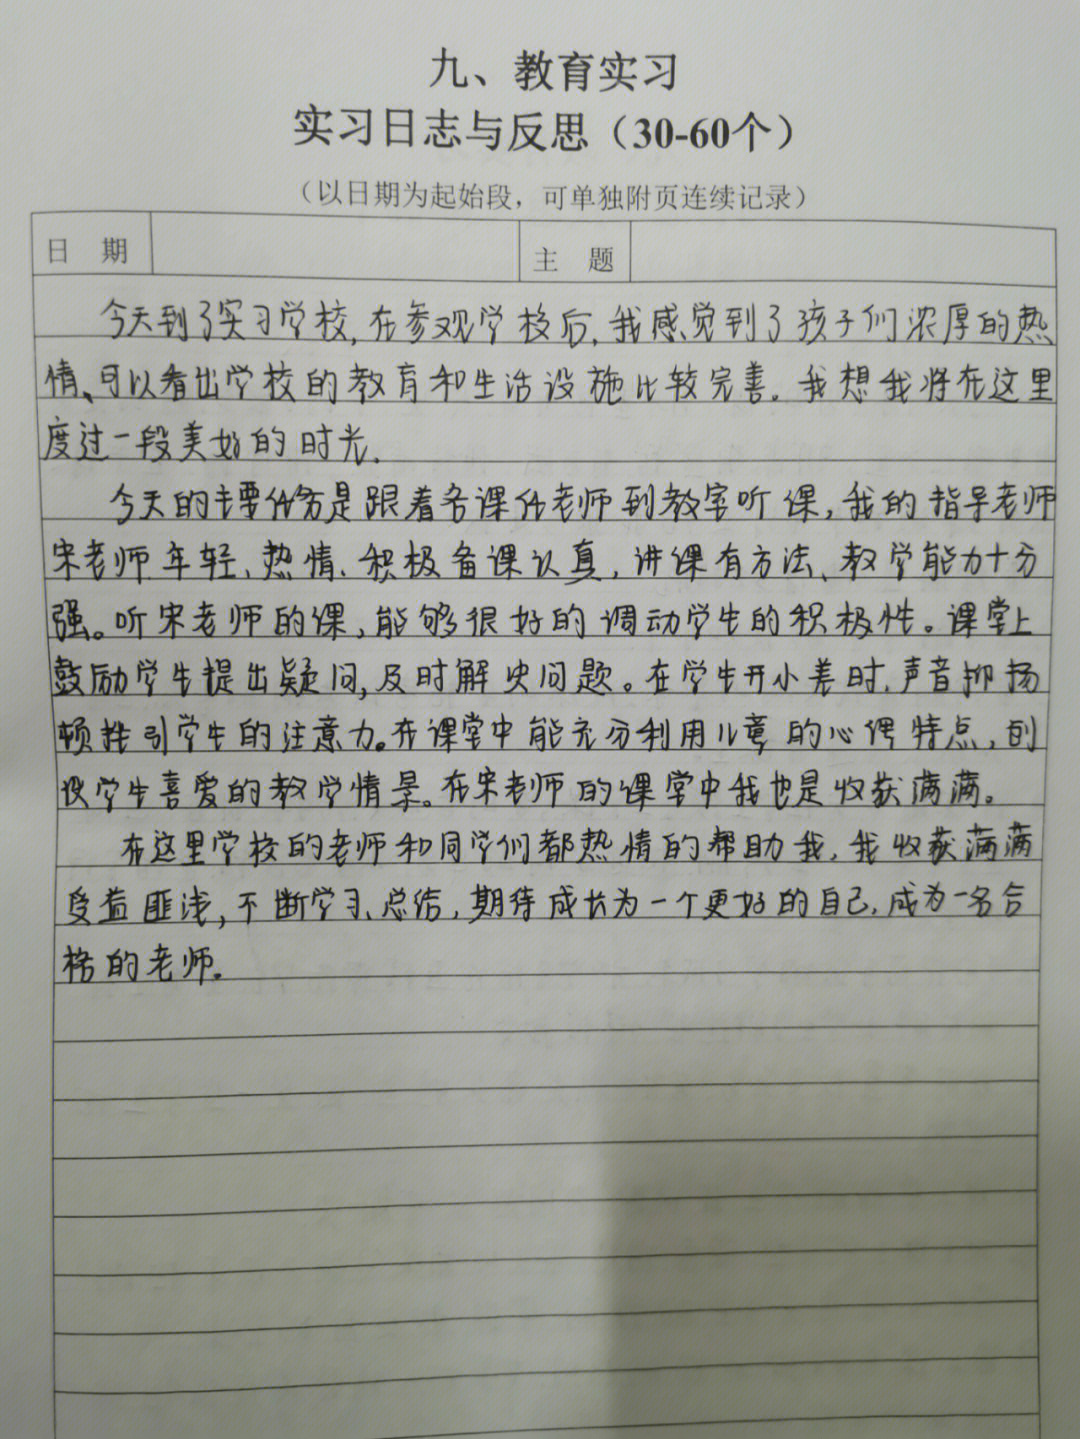 九、教育实习
实习日志与反思（30-60个）
（以日期为起始段，可单独附页连续记录）
日 期 主 题
今天到了实习学校,在参观学校后,我感觉到了孩子们浓厚的热
情、可以看出学校的教育和生活设施比较完善。我想我将在这里
度过一段美好的时光.
今天的主要任务是跟着各课任老师到教室听课,我的指导老师
宋老师年轻、热情、积极备课认真,讲课有方法、教学能力十分
强。听宋老师的课,能够很好的调动学生的积极性。课堂上
鼓励学生提出疑问,及时解决问题。在学生开小差时,声音抑扬
顿挫引学生的注意力。在课堂中能充分利用儿童的心理特点,创
设学生喜爱的教学情景。在宋老师的课堂中我也是收获满满。
在这里学校的老师和同学们都热情的帮助我,我收获满满
受益匪浅,不断学习、总结,期待成长为一个更好的自己,成为一名合
格的老师.